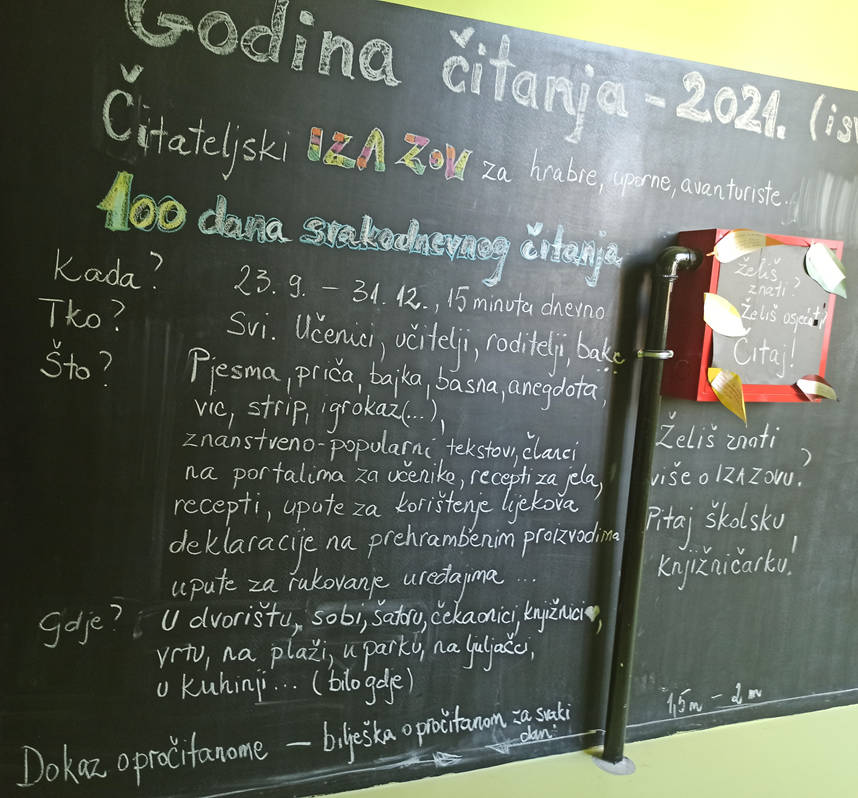 Godina čitanja - 2021. (is
Čitateljski IZAZOV za hrabre, uporne, avanturiste...
100 dana svakodnevnog čitanja
Kada? 23. 9. - 31. 12., 15 minuta dnevno
Tko? Svi. Učenici, učitelji, roditelji, bake...
Što? Pjesma, priča, bajka, basna, anegdota,
vic, strip, igrokaz(...),
znanstveno-popularni tekstovi, članci
na portalima za učenike, recepti za jela,
recepti, upute za korištenje lijekova
deklaracije na prehrambenim proizvodima
upute za rukovanje uređajima ...
Gdje? U dvorištu, sobi, šatoru, čekaonici, knjižnici,
vrtu, na plaži, u parku, na ljuljačci,
u kuhinji... (bilo gdje)
Dokaz o pročitanome - bilješka o pročitanom za svaki
dan
Želiš
znati?
Želiš osjećat?
Čitaj!
Želiš znati
više o IZAZOVU?
Pitaj školsku
knjižničarku!
1,5m - 2m